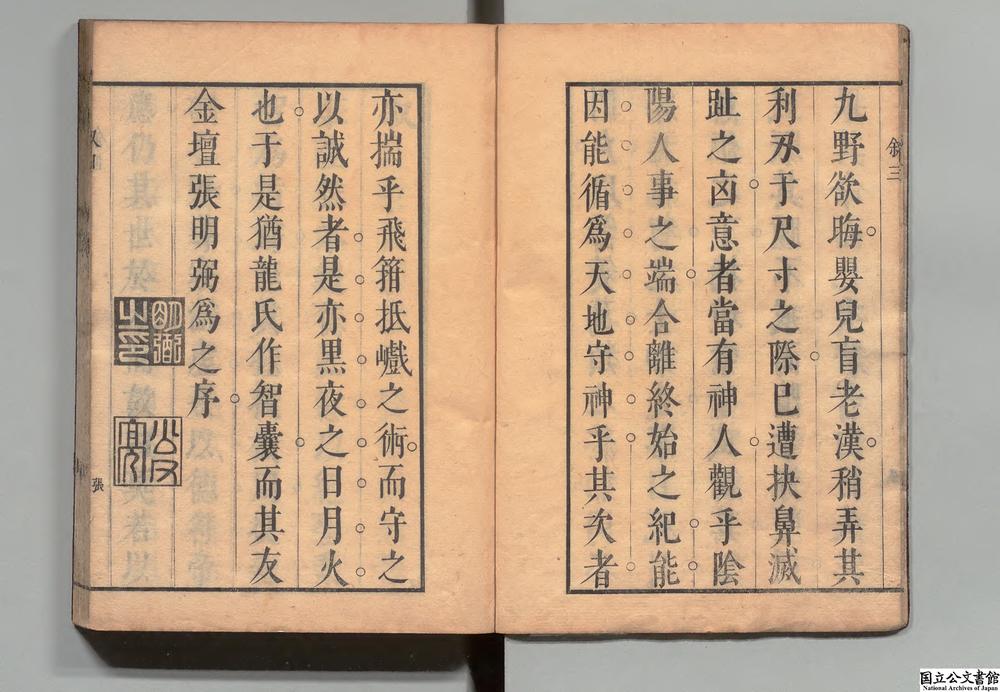 敘三
九野欲晦嬰兒盲老漢稍弄其
利刄于尺寸之際巳遭抉鼻滅
趾之凶意者當有神人觀乎陰
陽人事之端合離終始之紀能
因能循爲天地守神乎其次者
亦揣乎飛箝抵巇之術而守之
以誠然者是亦黑夜之日月火
也于是猶龍氏作智囊而其友
金壇張明弼爲之序
明弼之印
公及
張
国立公文書館
National Archives of Japan